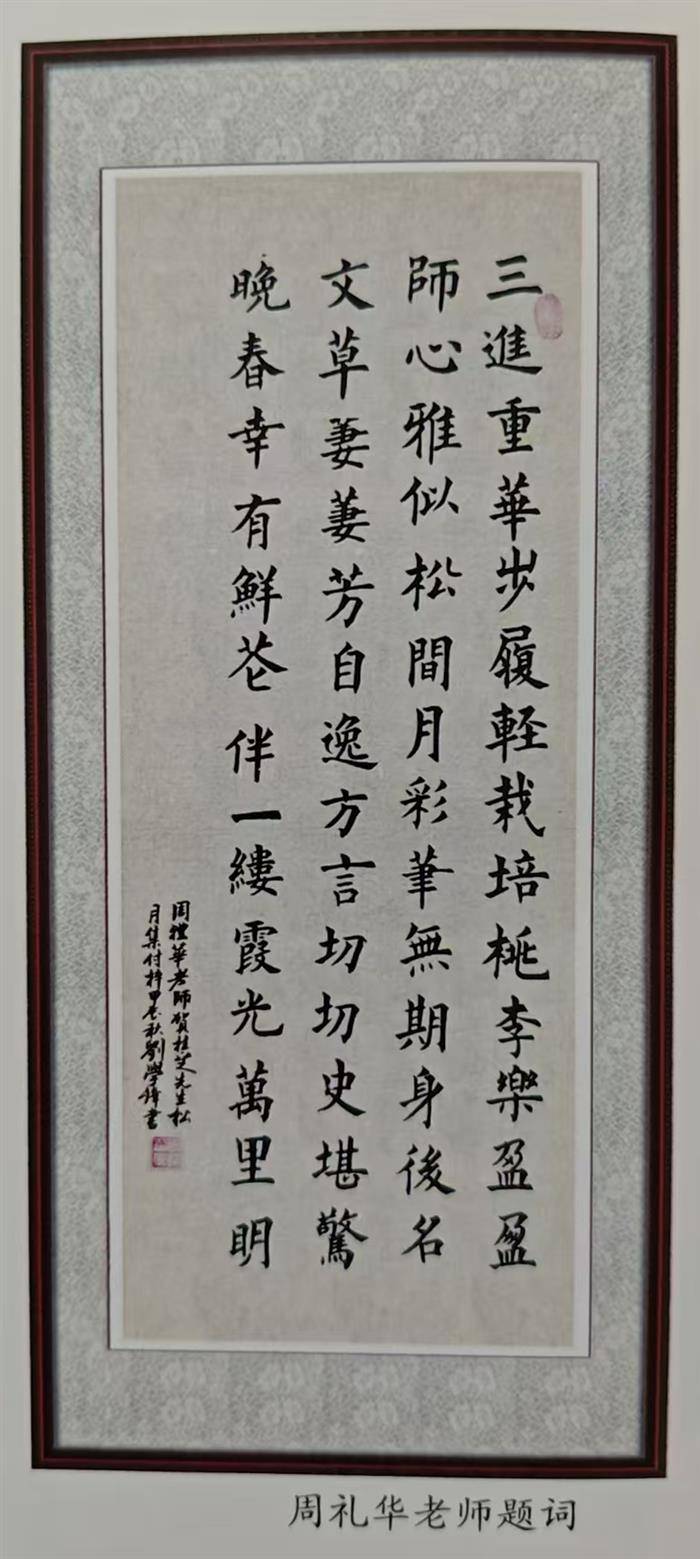 三進重華步履輕栽培桃李樂盈盈
師心雅似松間月彩筆無期身後名
文草萋萋芳自逸方言切切史堪驚
晚春幸有鮮花伴一縷霞光萬里明
周禮華老師賀桂芝先生松
月集付梓甲辰秋劉學鋒書
周礼华老师题词